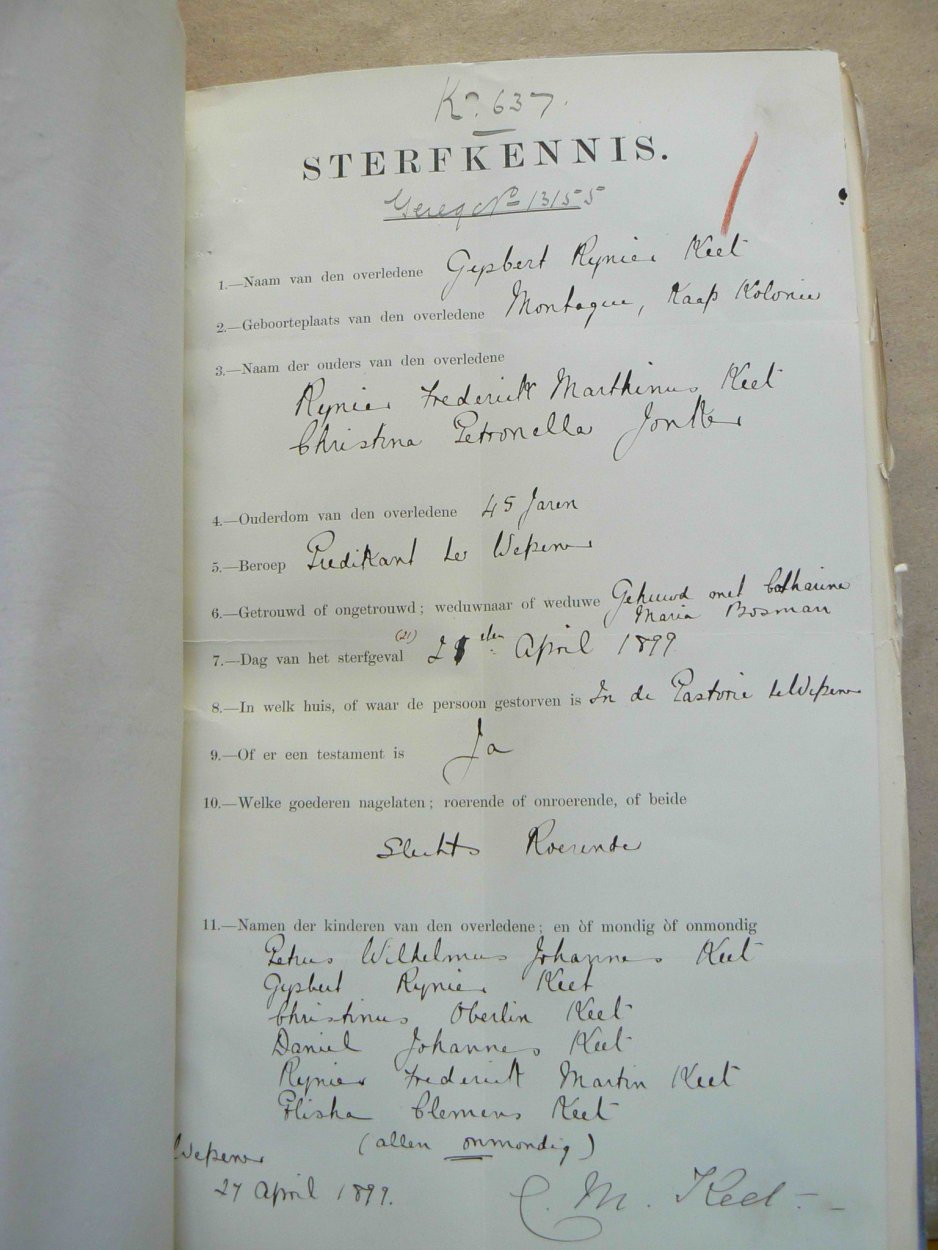 No. 637.
STERFKENNIS.
Gereg No 13155
1.—Naam van den overledene Gysbert Rynier Keet
2.—Geboorteplaats van den overledene Montague, Kaap Kolonie
3.—Naam der ouders van den overledene
Rynier Frederick Marthinus Keet
Christina Petronella Jonker
4.—Ouderdom van den overledene 45 Jaren
5.—Beroep Predikant te Wepener
6.—Getrouwd of ongetrouwd; weduwnaar of weduwe Gehuwd met Catharina
Maria Bosman
(21)
7.—Dag van het sterfgeval 21sten April 1899.
8.—In welk huis, of waar de persoon gestorven is In de Pastorie te Wepener
9.—Of er een testament is Ja
10.—Welke goederen nagelaten; roerende of onroerende, of beide
Slechts Roerende
11.—Namen der kinderen van den overledene; en òf mondig òf onmondig
Petrus Wilhelmus Johannes Keet
Gysbert Rynier Keet
Christinus Oberlin Keet
Daniel Johannes Keet
Rynier Frederick Martin Keet
Elisha Clemens Keet
(allen onmondig)
Wepener
27 April 1899.
C. M. Keet.